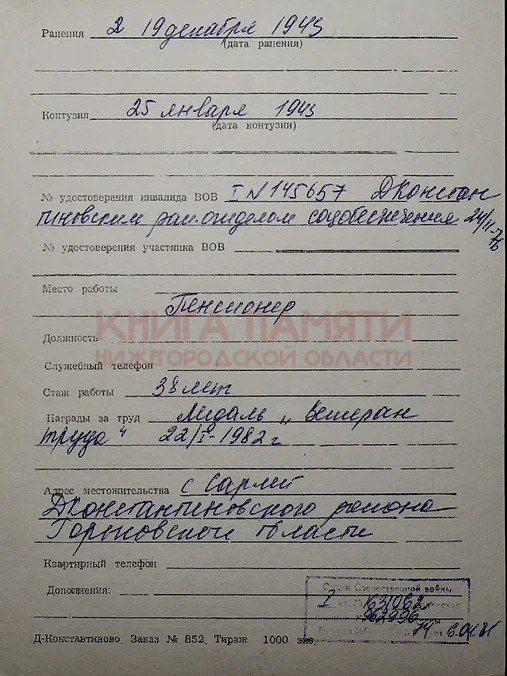 Ранения 2 19 декабря 1943
(дата ранения)
Контузия 25 января 1943
(дата контузии)
№ удостоверения инвалида ВОВ I № 145657 ДКонстан
тиновским рай.отделом соцобеспечения 24/II-76
№ удостоверения участника ВОВ
Место работы
Пенсионер
КНИГА ПАМЯТИ
Должность
НИЖЕГОРОДСКОЙ ОБЛАСТИ
Служебный телефон
Стаж работы 38 лет
Награды за труд Медаль „Ветеран
труда“ 22/I-1982 г
Адрес местожительства с Сарлей
ДКонстантиновского района
Горьковской области
Квартирный телефон
Дополнения:
Орден Отечественной войны
I 1631062
962996
74 от 6.04.81
Д-Константиново. Заказ № 852, Тираж 1000 экз.